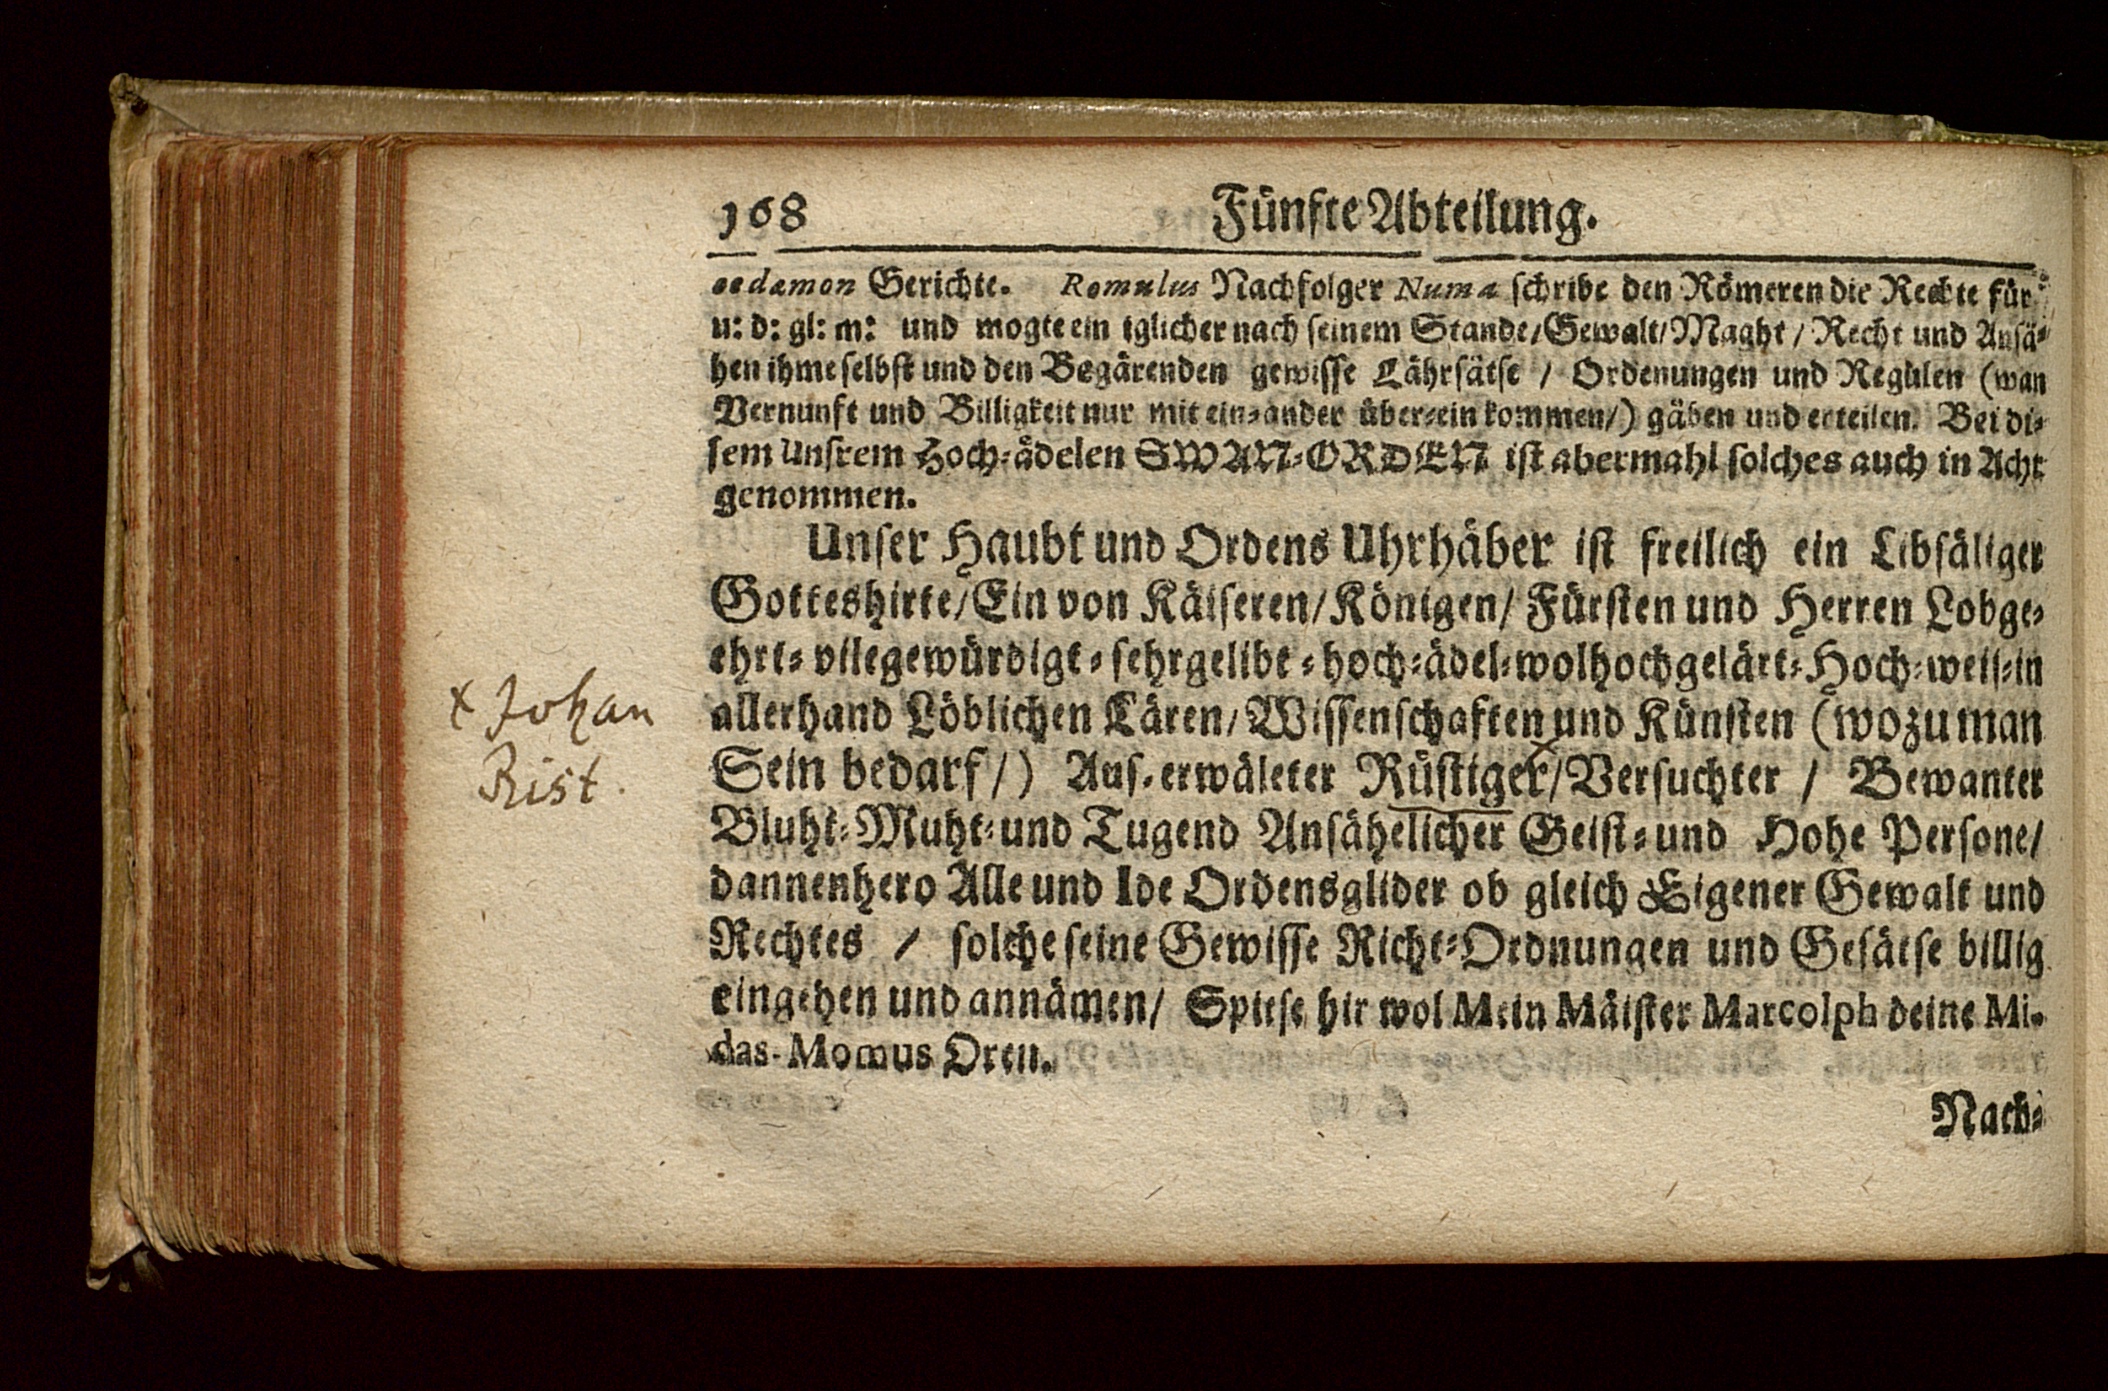 168 Fünfte Abteilung.
oedæmon Gerichte. Romulus Nachfolger Numa schribe den Römeren die Rechte für:
u: d: gl: m: und mogte ein iglicher nach seinem Stande/Gewalt/Maght / Recht und Ansä-
hen ihme selbst und den Begärenden gewisse Lährsätse / Ordenungen und Regülen (wan
Vernunft und Billigkeit nur mit ein-ander über-ein kommen/) gäben und erteilen. Bei di-
sem Unsrem Hoch-ädelen SWAN-ORDEN ist abermahl solches auch in Acht
genommen.
Unser Haubt und Ordens Uhrhäber ist freilich ein Libsäliger
Gotteshirte/Ein von Käiseren/Königen/ Fürsten und Herren Lobge-
ehrt- vilegewürdigt- sehrgelibt- hoch-ädel-wolhochgelärt-Hoch-weis-in
x Johan
Rist.
allerhand Löblichen Lären/Wissenschaften und Künsten (wozu man
Sein bedarf/) Aus-erwäleter Rüstiger x/Versuchter / Bewanter
Bluht-Muht-und Tugend Ansähelicher Geist-und Hohe Persone/
dannenhero Alle und Ide Ordensglider ob gleich Eigener Gewalt und
Rechtes / solche seine Gewisse Richt-Ordnungen und Gesätse billig
eingehen und annämen/ Spitse hir wol Mein Mäister Marcolph deine Mi-
das-Momus Oren.
Nach-